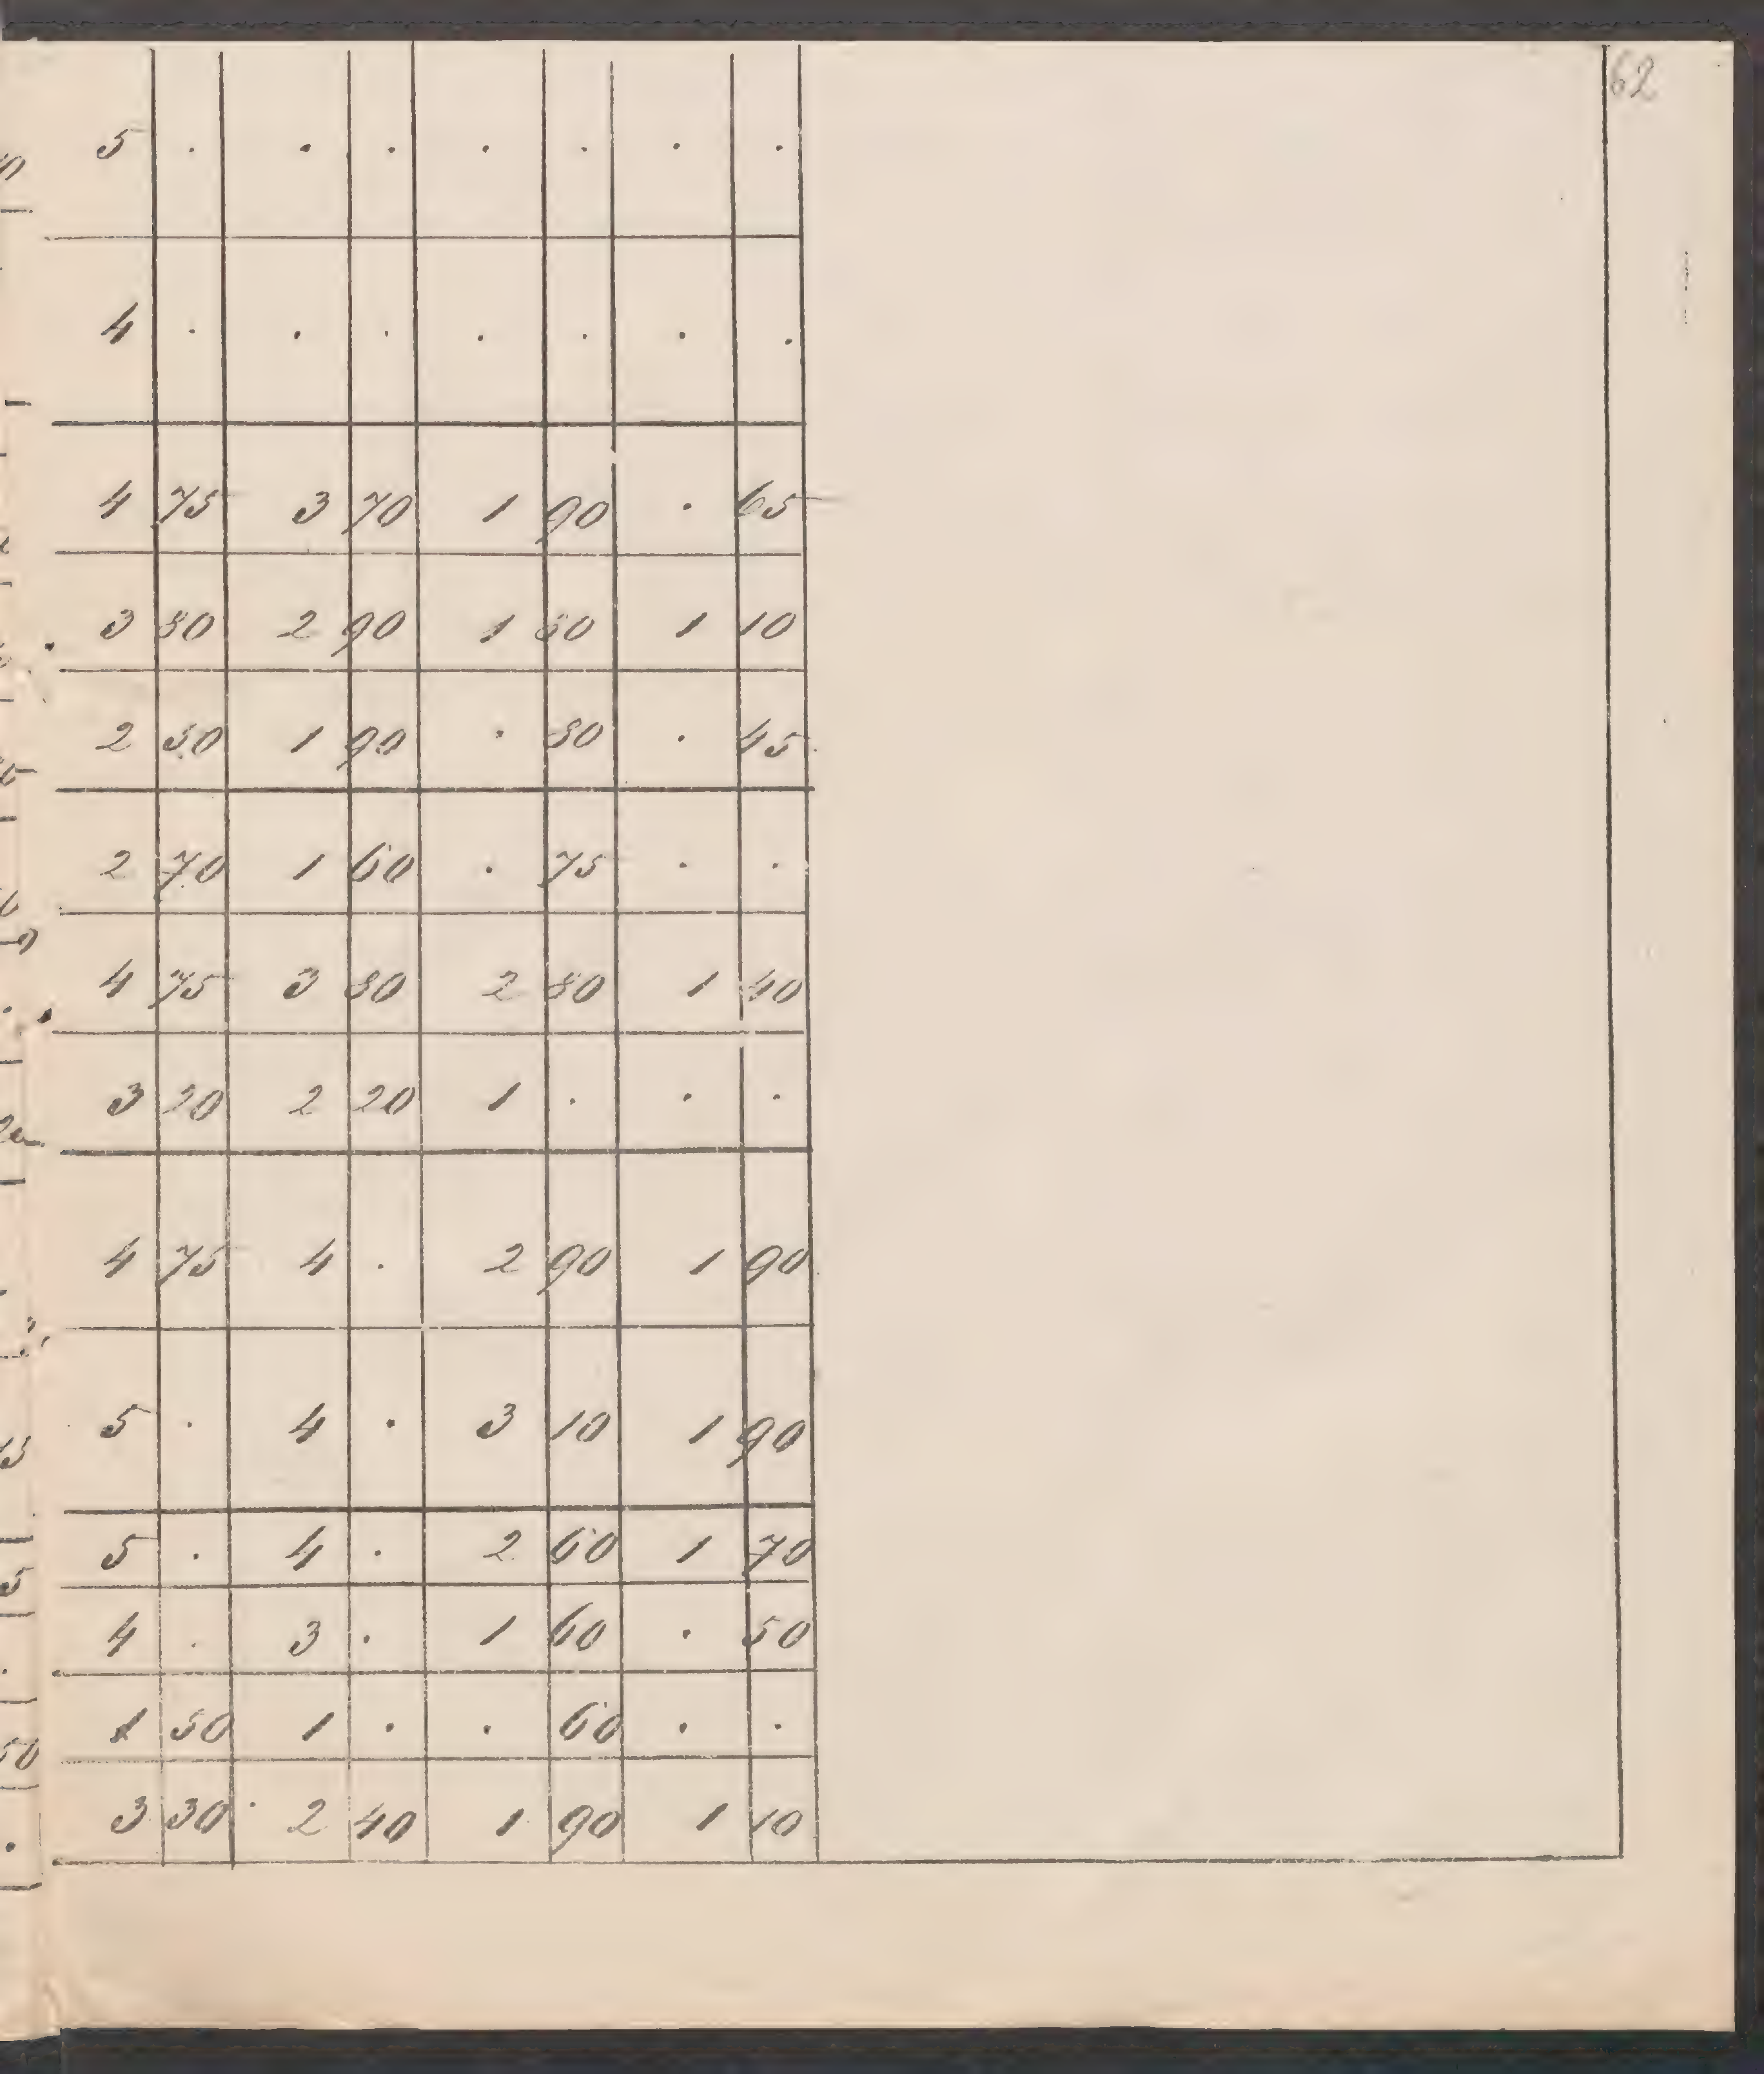 62
5 . . . . . . .
4 . . . . . . .
4 75 3 70 1 90 . 65
3 80 2 90 1 80 1 10
2 50 1 90 . 80 . 45
2 70 1 60 . 75 . .
4 75 3 80 2 80 1 40
3 20 2 20 1 . . .
4 75 4 . 2 90 1 90
5 . 4 . 3 10 1 90
5 . 4 . 2 60 1 70
4 . 3 . 1 60 . 50
1 50 1 . . 60 . .
3 30 2 40 1 90 1 10